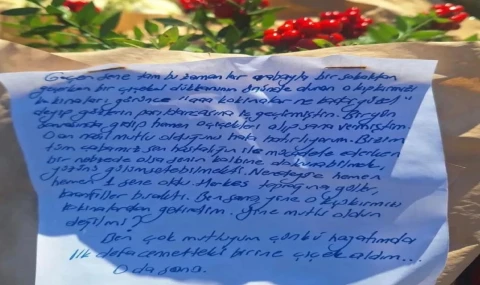 Geçen sene tam bu zamanlar arabayla bir sokaktan
geçerken bir çiçekçi dükkanının önünde duran o kıpkırmızı
kokinaları görünce "aaa kokinalar ne kadar güzel"
deyip gözlerin parıldarcasına iç geçirmiştin. Bir gün
sonrasında gidip hemen o çiçekleri alıp sana vermiştim.
O an nasıl mutlu olduğunu hala hatırlıyorum. Bizim
tüm çabamız sen hastalığın ile mücadele ederken
bir nebzede olsa senin kalbine dokunabilmek,
yüzünü gülümsetebilmekti. Neredeyse hemen
hemen 1 sene oldu. Herkes toprağına güller,
karanfiller bıraktı. Ben sana yine o kıpkırmızı
kokinalardan getirdim. Yine mutlu oldun
değil mi?
Ben çok mutluyum çünkü hayatımda
ilk defa cennetteki birine çiçek aldım...
O da sana.